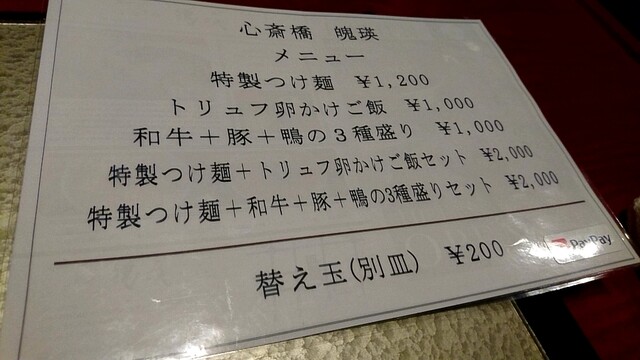 心斎橋 魄瑛
メニュー
特製つけ麺 ¥1,200
トリュフ卵かけご飯 ¥1,000
和牛＋豚＋鴨の3種盛り ¥1,000
特製つけ麺＋トリュフ卵かけご飯セット ¥2,000
特製つけ麺＋和牛＋豚＋鴨の3種盛りセット ¥2,000
替え玉(別皿) ¥200
PayPay